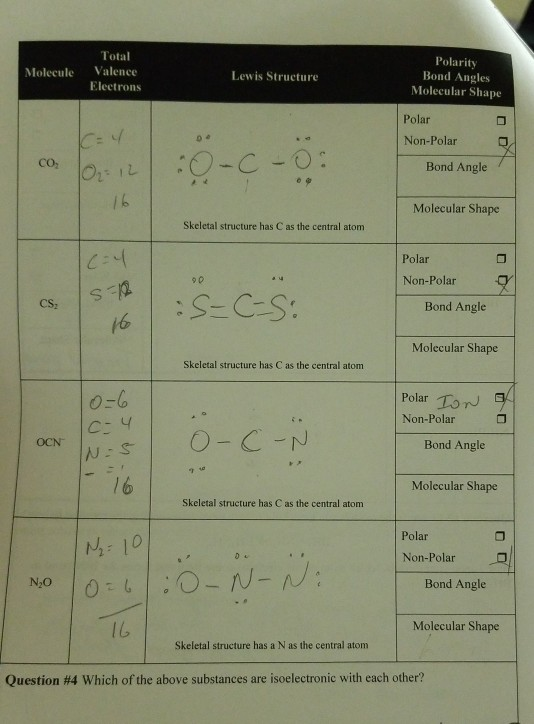 Molecule
Total
Valence
Electrons
Lewis Structure
Polarity
Bond Angles
Molecular Shape
CO₂
C = 4
O₂ = 12
16
:O-C-O:
Skeletal structure has C as the central atom
Polar
Non-Polar
Bond Angle
Molecular Shape
CS₂
C = 4
S = 12
16
:S=C=S:
Skeletal structure has C as the central atom
Polar
Non-Polar
Bond Angle
Molecular Shape
OCN⁻
O = 6
C = 4
N = 5
- = 1
16
O-C-N
Skeletal structure has C as the central atom
Polar Ion
Non-Polar
Bond Angle
Molecular Shape
N₂O
N₂ = 10
O = 6
16
:O-N-N:
Skeletal structure has a N as the central atom
Polar
Non-Polar
Bond Angle
Molecular Shape
Question #4 Which of the above substances are isoelectronic with each other?